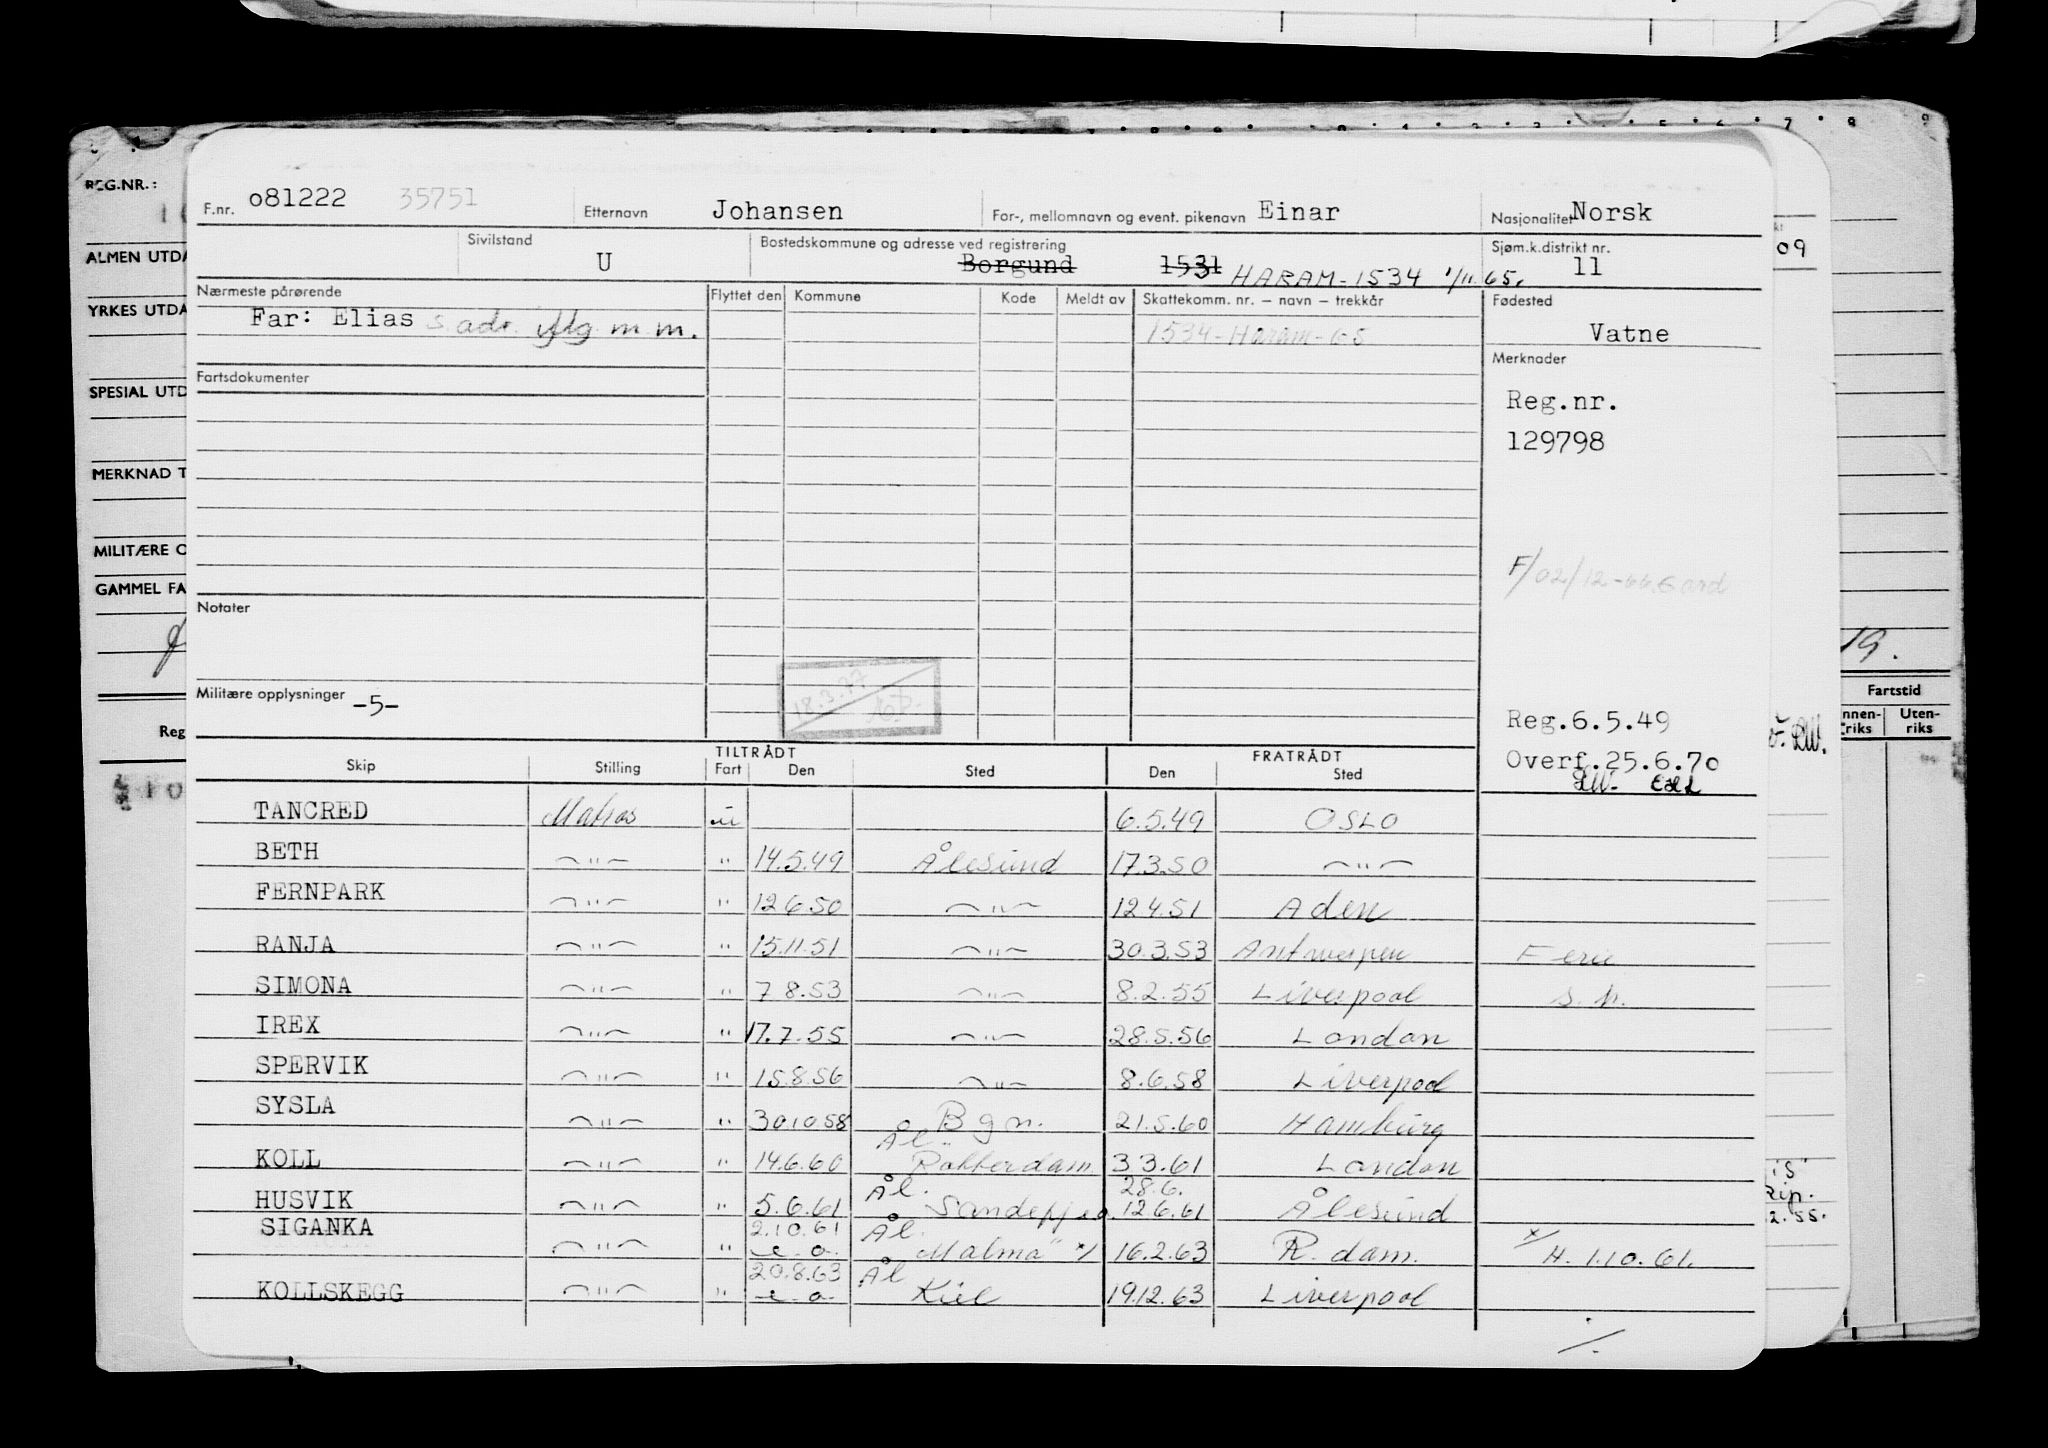 REG.NR.:
ALMEN UTDA
YRKES UTDA
SPESIAL UTD
MERKNAD T
MILITÆRE O
GAMMEL FA
Reg
F.nr. o81222 35751 Etternavn Johansen For-, mellomnavn og event. pikenavn Einar Nasjonalitet Norsk
Sivilstand U Bostedskommune og adresse ved registrering Borgund 1531 HARAM-1534 1/11.65. Sjøm.k.distrikt nr. 11
09
Nærmeste pårørende Flyttet den Kommune Kode Meldt av Skattekomm. nr. – navn – trekkår Fødested
Far: Elias s. adr. iflg. m.m. 1534-Haram-65 Vatne
Fartsdokumenter
Merknader
Reg.nr.
129798
F/02/12-66.
Notater
Militære opplysninger -5-
18.3.77
Reg.6.5.49
Overf.25.6.70
19.
Fartstid
nnen-riks Uten-riks
TILTRÅDT FRATRÅDT
Skip Stilling Fart Den Sted Den Sted
TANCRED Matros u 6.5.49 OSLO
BETH —"— " 14.5.49 Ålesund 17.3.50 —"—
FERNPARK —"— " 12.6.50 —"— 12.4.51 Aden
RANJA —"— " 15.11.51 —"— 30.3.53 Antwerpen Ferie
SIMONA —"— " 7.8.53 —"— 8.2.55 Liverpool s.h.
IREX —"— " 17.7.55 —"— 28.5.56 London
SPERVIK —"— " 15.8.56 —"— 8.6.58 Liverpool
SYSLA —"— " 30.10.58 Bgn. 21.5.60 Hamburg
KOLL —"— " 14.6.60 Ål. Rotterdam 3.3.61 London
HUSVIK —"— " 5.6.61 Ål. Sandefj. 28.6. 12.6.61 Ålesund
SIGANKA —"— " 2.10.61 e.o. Ål. Malmö x/ 16.2.63 R.dam. x/ H. 1.10.61.
KOLLSKEGG —"— " 20.8.63 e.o. Ål Kiel 19.12.63 Liverpool
./.